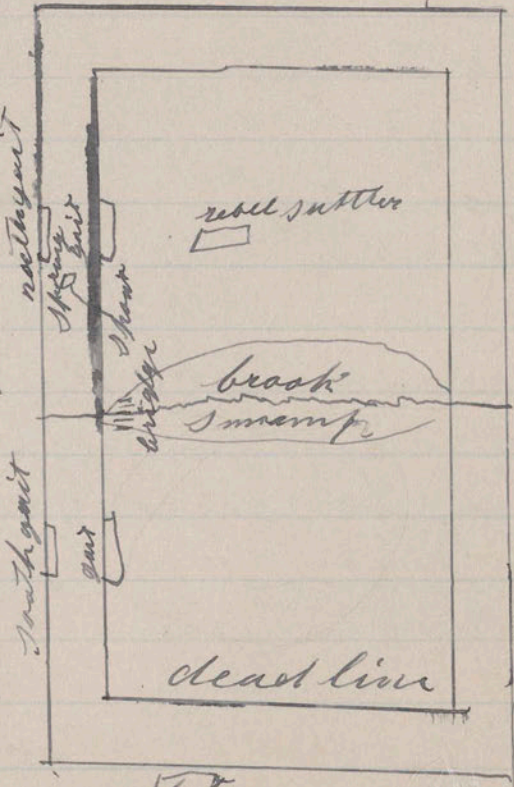 north gait
spring
gait
rebel suttler
bridge
brook
swamp
south gait
gait
dead line